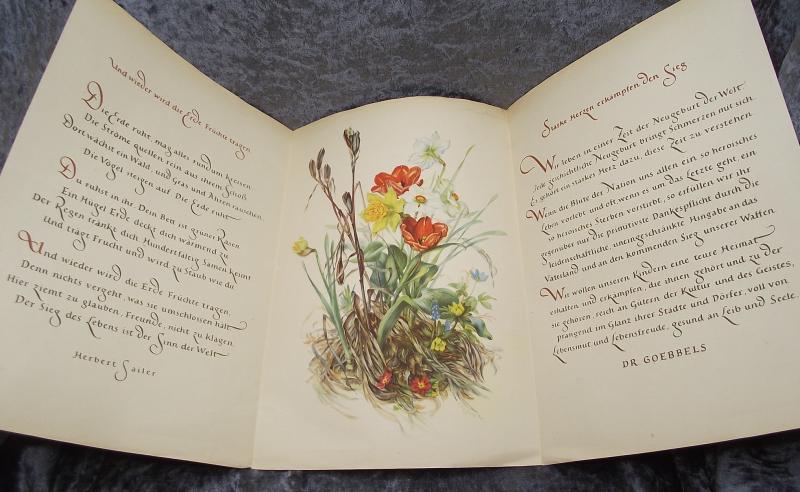 Und wieder wird die Erde Früchte tragen
Die Erde ruht, mag alles rundum kreisen
Die Ströme quellen rein aus ihrem Schoß
Dort wächst ein Wald, und Gras und Ähren rauschen
Die Vögel steigen auf. Die Erde ruht
Du ruhst in ihr. Dein Bett ist grüner Rasen
Ein Hügel Erde deckt dich wärmend zu
Der Regen tränkt dich. Hundertfältig Samen keimt
Und trägt Frucht und wird zu Staub wie du
Und wieder wird die Erde Früchte tragen,
Denn nichts vergeht, was sie umschlossen hält
Hier ziemt zu glauben, Freunde, nicht zu klagen.
Der Sieg des Lebens ist der Sinn der Welt
Herbert Sailer
Starke Herzen erkämpfen den Sieg
Wir leben in einer Zeit der Neugeburt der Welt
Jede geschichtliche Neugeburt bringt Schmerzen mit sich.
Es gehört ein starkes Herz dazu, diese Zeit zu verstehen.
Wenn die Blüte der Nation uns allen ein so heroisches
Leben vorlebt und oft, wenn es um das Letzte geht, ein
so heroisches Sterben vorstirbt, so erfüllen wir ihr
gegenüber nur die primitivste Dankespflicht durch die
leidenschaftliche, uneingeschränkte Hingabe an das
Vaterland und an den kommenden Sieg unserer Waffen.
Wir wollen unseren Kindern eine teure Heimat
erhalten und erkämpfen, die ihnen gehört und zu der
sie gehören, reich an Gütern der Kultur und des Geistes,
prangend im Glanz ihrer Städte und Dörfer, voll von
Lebensmut und Lebensfreude, gesund an Leib und Seele.
DR GOEBBELS